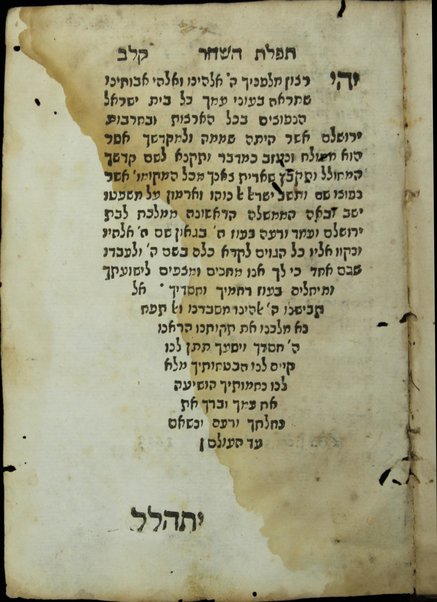 תפלת השחר קלב
יהי רצון מלפניך ה' אלהינו ואלהי אבותינו
שתראה בעוני עמך כל בית ישראל
הנפוצים בכל הארצות ובחרבות
ירושלם אשר היתה שממה ולמקדשך אשר
הוא משולח ונעזב כמדבר ותקנא לשם קדשך
המחולל ותקבץ שארית צאנך מכל המקומו' אשר
נפוצו שם ותשב ישראל אל נוהו וארמון על משפטו
ישב ובאה הממשלה הראשונה ממלכת לבת
ירושלם ועמד ורעה בעוז ה' בגאון שם ה' אלהיו
ונקוו אליו כל הגוים לקרא כלם בשם ה' ולעבדו
שכם אחד כי לך אנו מחכים ומצפים לישועתך
ותיחלים בעוז רחמיך וחסדיך אל
תבישנו ה' אלהינו משברנו ואל תפח
נא מלבנו את תקותנו הראנו
ה' חסדך וישעך תתן לנו
קיים לנו הבטחותיך מלא
לנו נחמותיך הושיעה
את עמך וברך את
נחלתך ורעם ונשאם
עד העולם
יתהלל